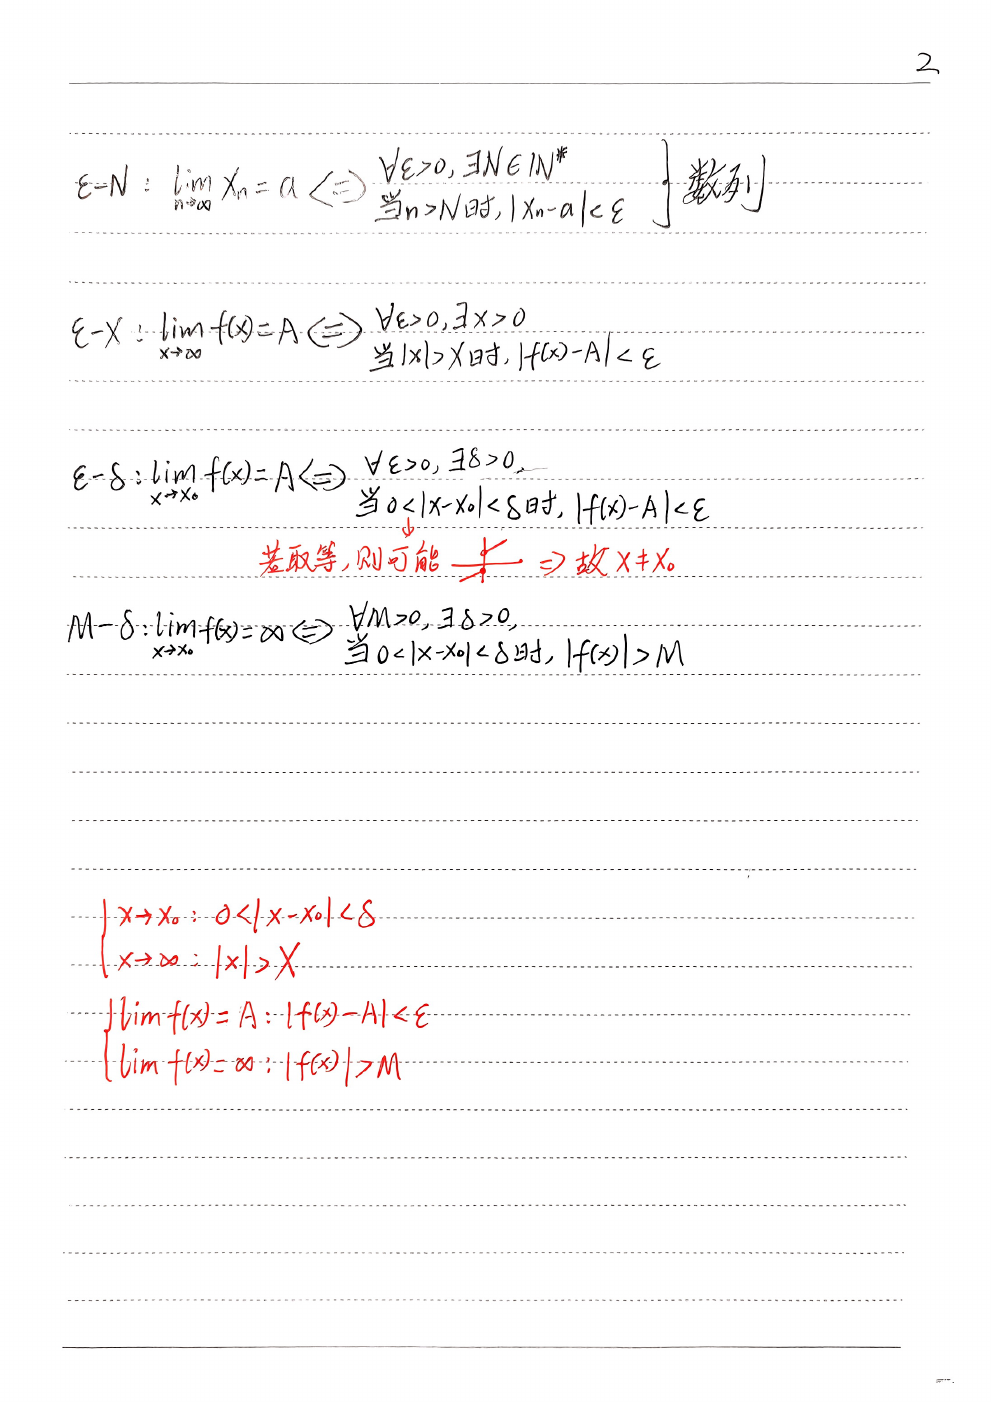 2
ε-N: lim n→∞ Xn = a <=> ∀ε>0, ∃N∈IN*
当n>N时, |Xn-a|<ε } 数列
ε-X: lim x→∞ f(x)=A <=> ∀ε>0, ∃X>0
当|x|>X时, |f(x)-A|<ε
ε-δ: lim x→x₀ f(x)=A <=> ∀ε>0, ∃δ>0,
当0<|x-x₀|<δ时, |f(x)-A|<ε
↓
若取等,则可能 => 故 x≠x₀
M-δ: lim x→x₀ f(x)=∞ <=> ∀M>0, ∃δ>0,
当0<|x-x₀|<δ时, |f(x)|>M
{ x→x₀: 0<|x-x₀|<δ
x→∞: |x|>X
{ lim f(x)=A: |f(x)-A|<ε
lim f(x)=∞: |f(x)|>M